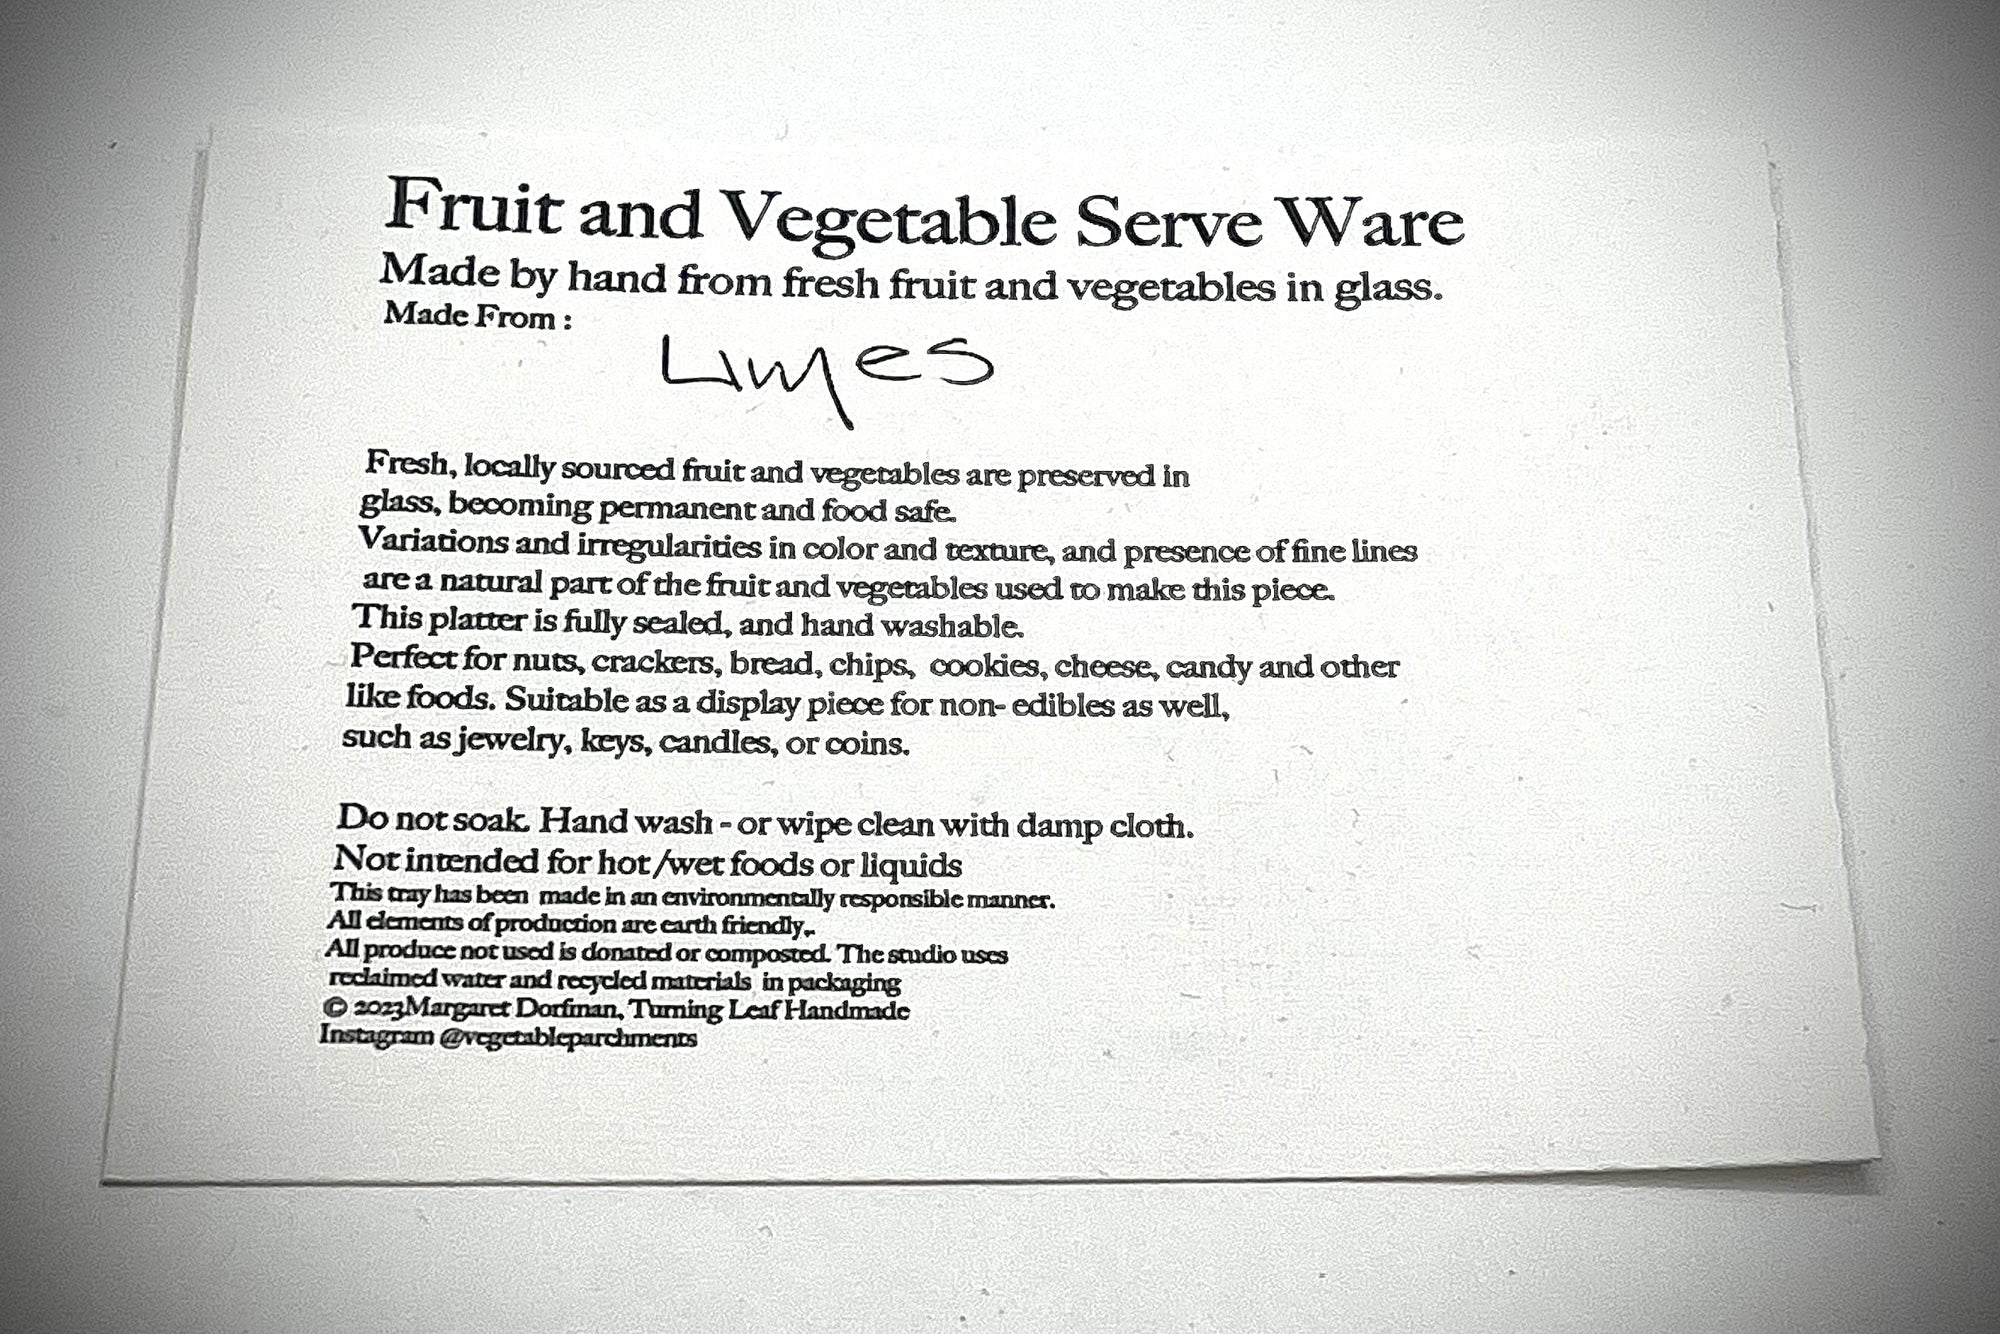 Fruit and Vegetable Serve Ware
Made by hand from fresh fruit and vegetables in glass.
Made From :
Limes
Fresh, locally sourced fruit and vegetables are preserved in
glass, becoming permanent and food safe.
Variations and irregularities in color and texture, and presence of fine lines
are a natural part of the fruit and vegetables used to make this piece.
This platter is fully sealed, and hand washable.
Perfect for nuts, crackers, bread, chips, cookies, cheese, candy and other
like foods. Suitable as a display piece for non- edibles as well,
such as jewelry, keys, candles, or coins.
Do not soak. Hand wash - or wipe clean with damp cloth.
Not intended for hot /wet foods or liquids
This tray has been made in an environmentally responsible manner.
All elements of production are earth friendly,.
All produce not used is donated or composted. The studio uses
reclaimed water and recycled materials in packaging
© 2023Margaret Dorfman, Turning Leaf Handmade
Instagram @vegetableparchments